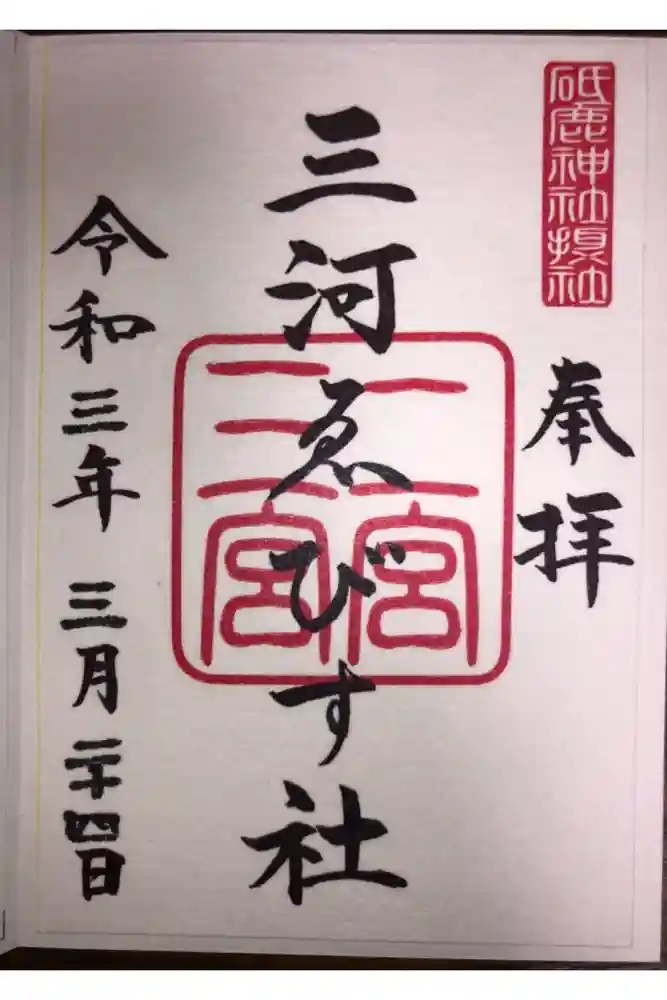 砥鹿神社摂社
奉拝
三河ゑびす社
二宮
三宮
令和三年 三月二十四日